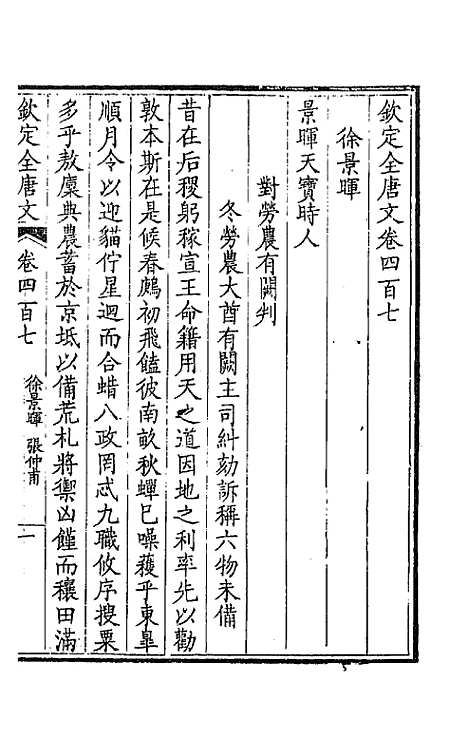 欽定全唐文卷四百七
徐景暉
景暉天寶時人
對勞農有闕判
冬勞農大酋有闕主司糾劾訴稱六物未備
昔在后稷躬稼宣王命籍用天之道因地之利率先以勸
敦本斯在是候春鳸初飛饁彼南畝秋蟬巳噪穫乎東皐
順月令以迎貓佇星迴而合蜡八政罔忒九職攸序搜粟
多乎敖廩典農蓄於京坻以備荒札將禦凶饉而穰田滿
欽定全唐文 卷四百七 徐景暉 張仲甫 一